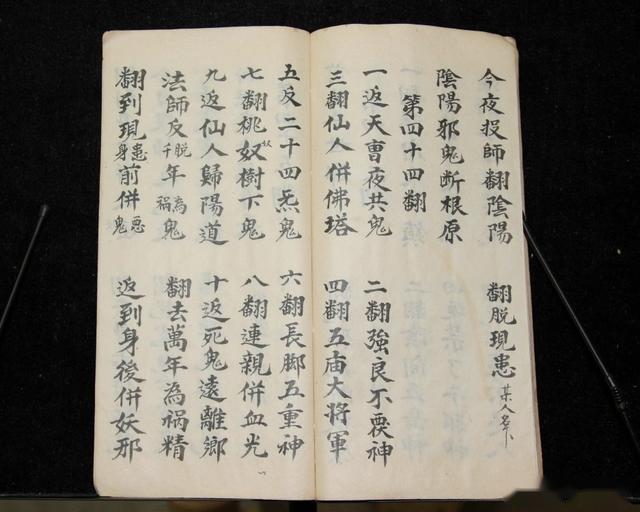 今夜投師翻陰陽 翻脱現患 某人名下
陰陽邪鬼断根原
第四十四翻
一返天曹夜共鬼 二翻強良不神
三翻仙人併佛塔 四翻五庙大將軍
五反二十四炁鬼 六翻長脚五重神
七翻桃奴樹下鬼 八翻連親併血光
九返仙人歸陽道 十返死鬼遠離鄉
法師反脱千年為禍鬼 翻去萬年為祸精
翻到現患身前併惡鬼 返到身後併妖邪